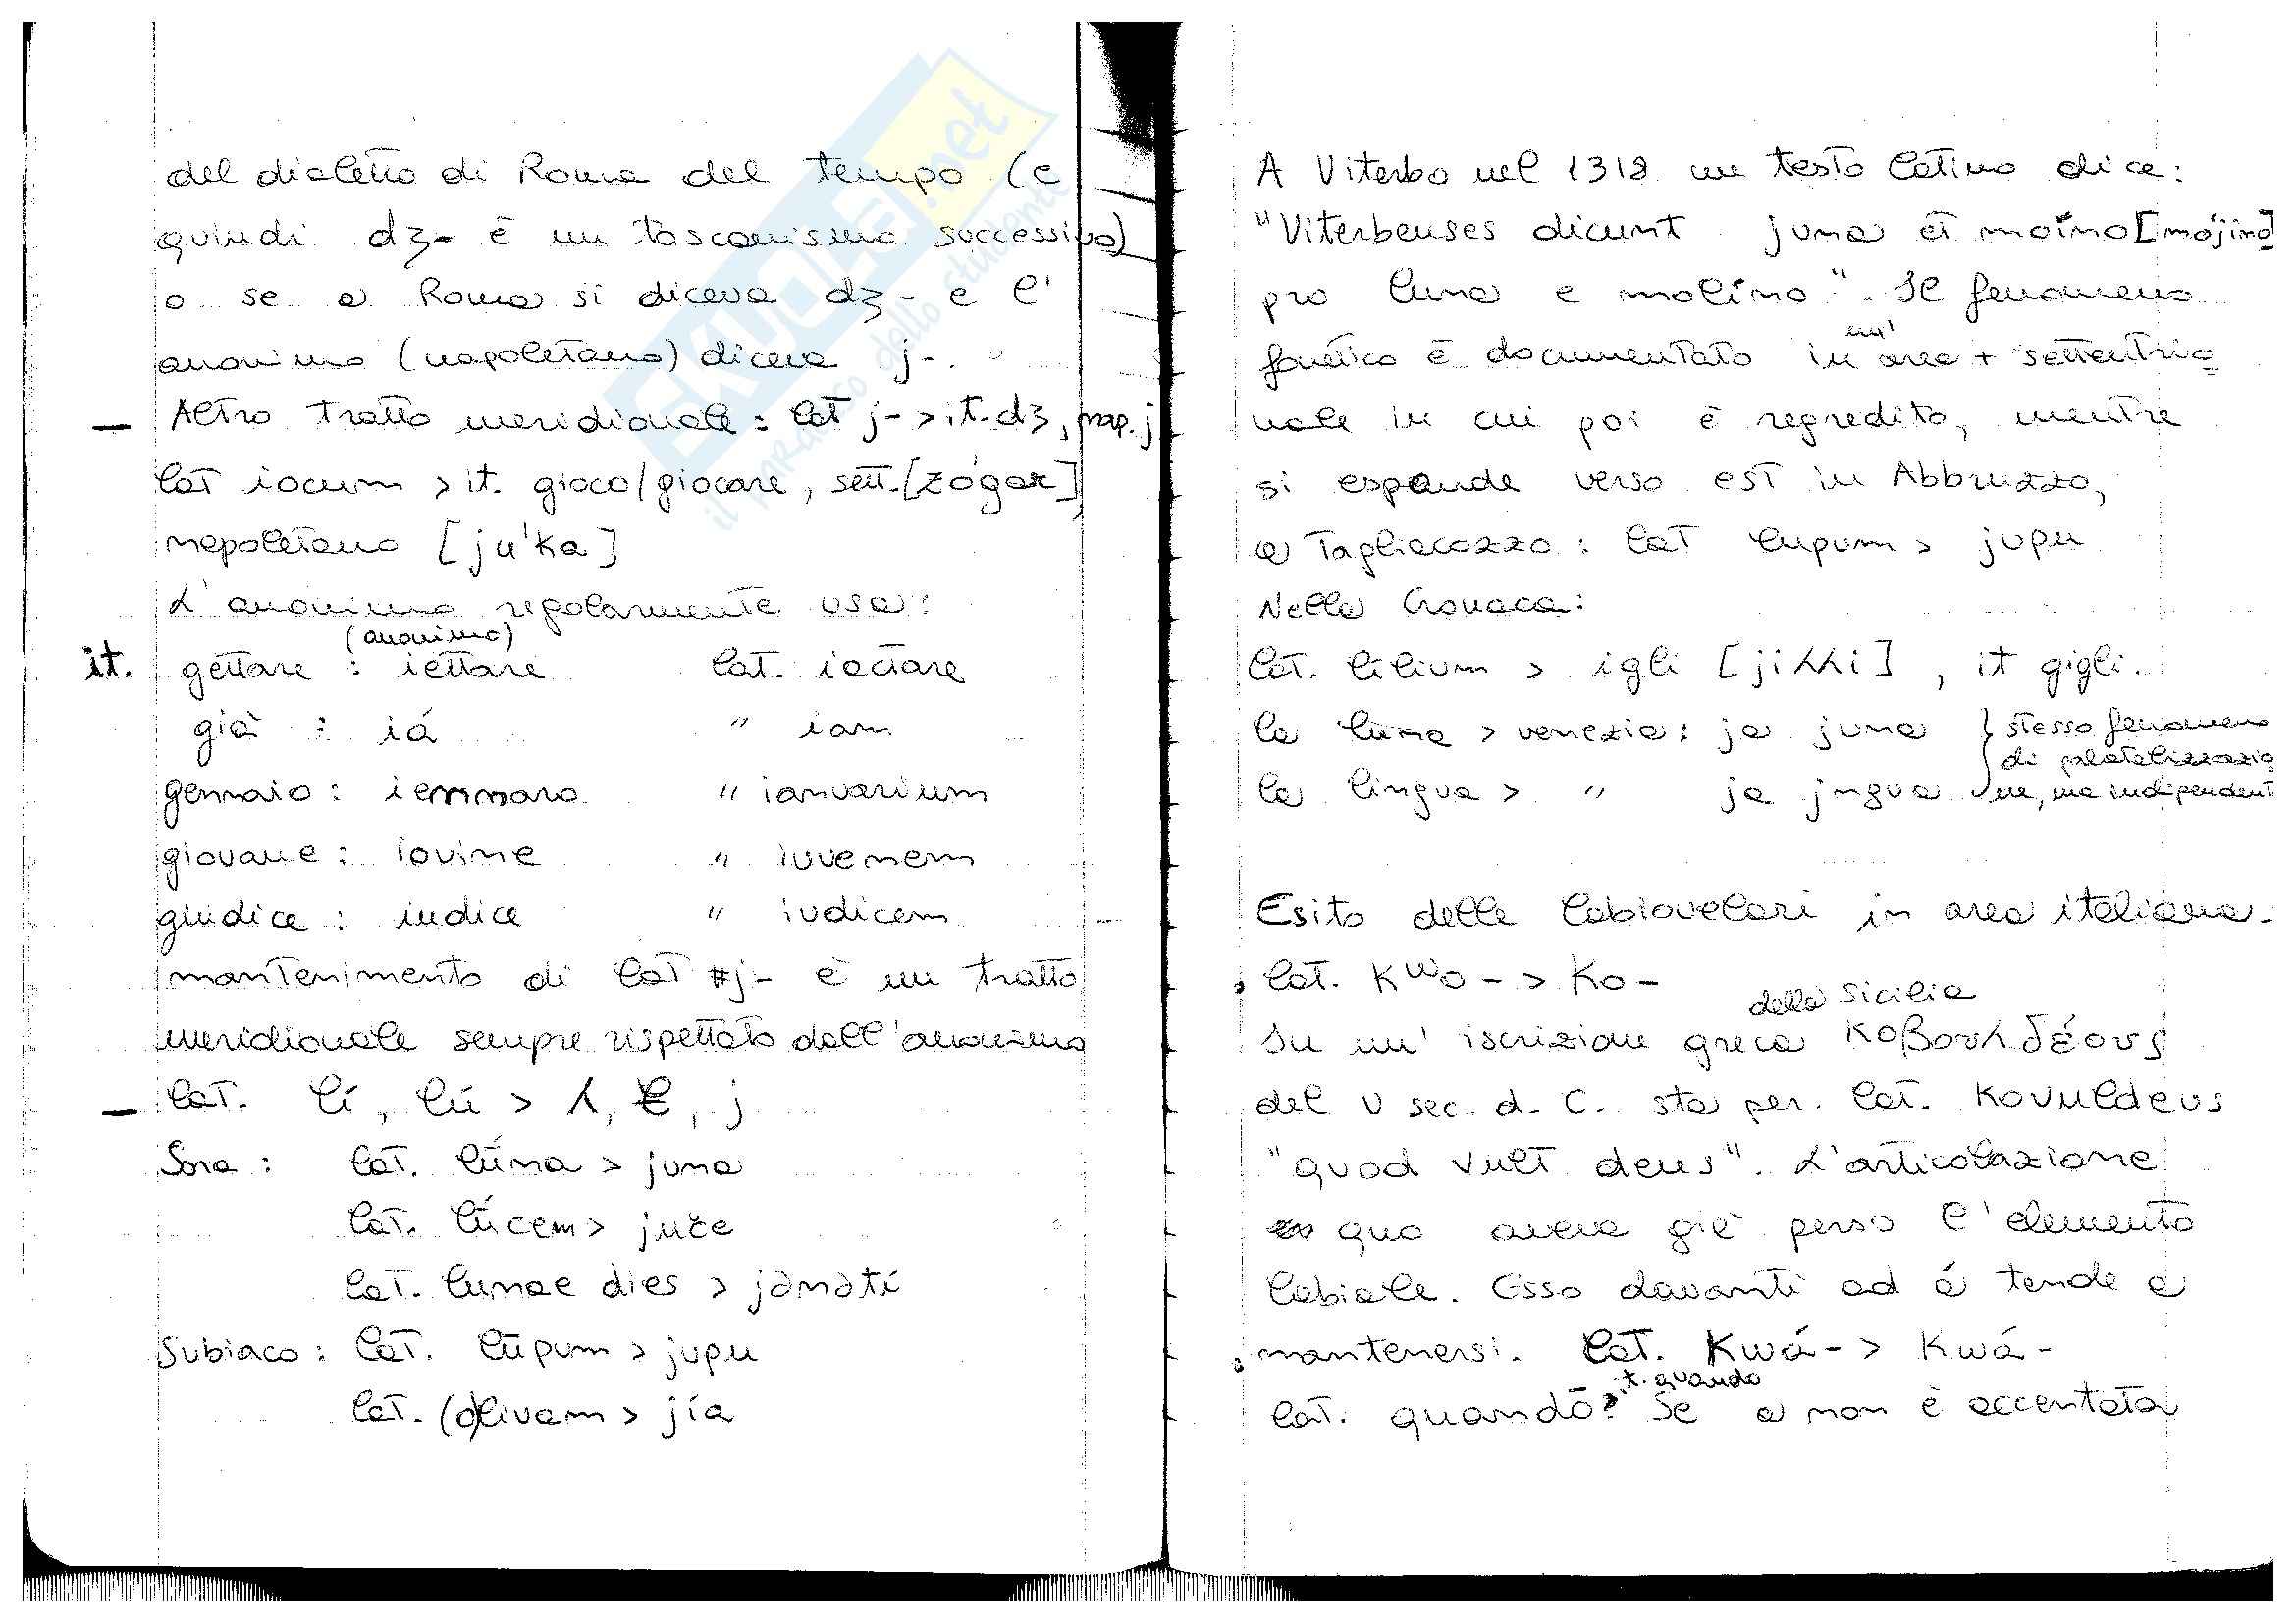 del dialetto di Roma del tempo (e
quindi dʒ- è un toscanismo successivo)
o se a Roma si diceva dʒ- e l'
anonimo (napoletano) diceva j-.
— Altro tratto meridionale: lat j- > it. dʒ, nap. j
lat iocum > it. gioco/giocare, sett. [zógar]
napoletano [ju'ka]
L'anonimo regolarmente usa:
(anonimo)
it. gettare : iettare lat. iactare
già : iá " iam
gennaio : iennaro " ianuarium
giovane : iovine " iuvenem
giudice : iudice " iudicem
mantenimento di lat #j- è un tratto
meridionale sempre rispettato dall'anonimo
— lat. lí, lú > ʎ, j
Sora : lat. lūna > juna
lat. lūcem > juče
lat. lunae dies > jənətí
Subiaco : lat. lŭpum > jupu
lat. (o)livam > jía
A Viterbo nel 1318 un testo latino dice:
"Viterbenses dicunt juna et moíno [mojino]
pro luna e molíno". Il fenomeno
fonetico è documentato in un' area + settentrio
nale in cui poi è regredito, mentre
si espande verso est in Abbruzzo,
a Tagliacozzo : lat lupum > jupu
Nella Cronaca:
lat. lilium > igli [jiʎʎi], it gigli.
la luna > venezia: ja juna } stesso fenomeno
di palatalizzazio
la lingua > " ja jngua ne, ma indipendent
Esito delle labiovelari in area italiana.
• lat. Kʷo- > Ko-
della Sicilia
Su un' iscrizione greca κοβουλδέους
del V sec. d. C. sta per lat. Kovuldeus
"quod vult deus". L'articolazione
quo aveva già perso l'elemento
labiale. Esso davanti ad á tende a
• mantenersi. lat. Kwá- > Kwá-
it. quando
lat. quandō > Se a non è accentata